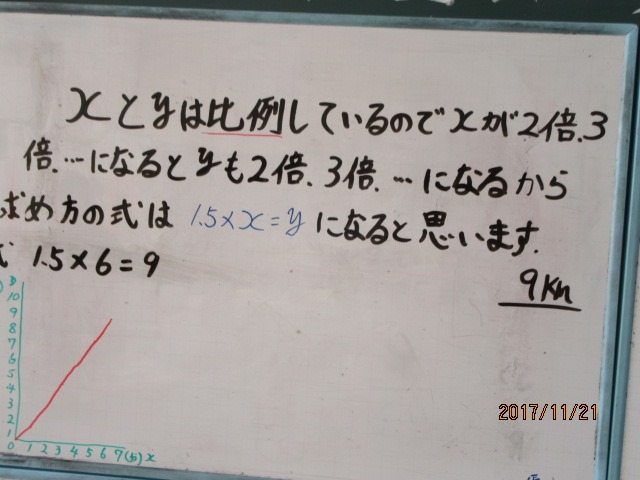 xとyは比例しているのでxが2倍.3
倍.…になるとyも2倍.3倍.…になるから
求め方の式は 1.5×x=y になると思います.
式 1.5×6=9
9km
10
9
8
7
6
5
4
3
2
1
0
1 2 3 4 5 6 7(分) x
2017/11/21